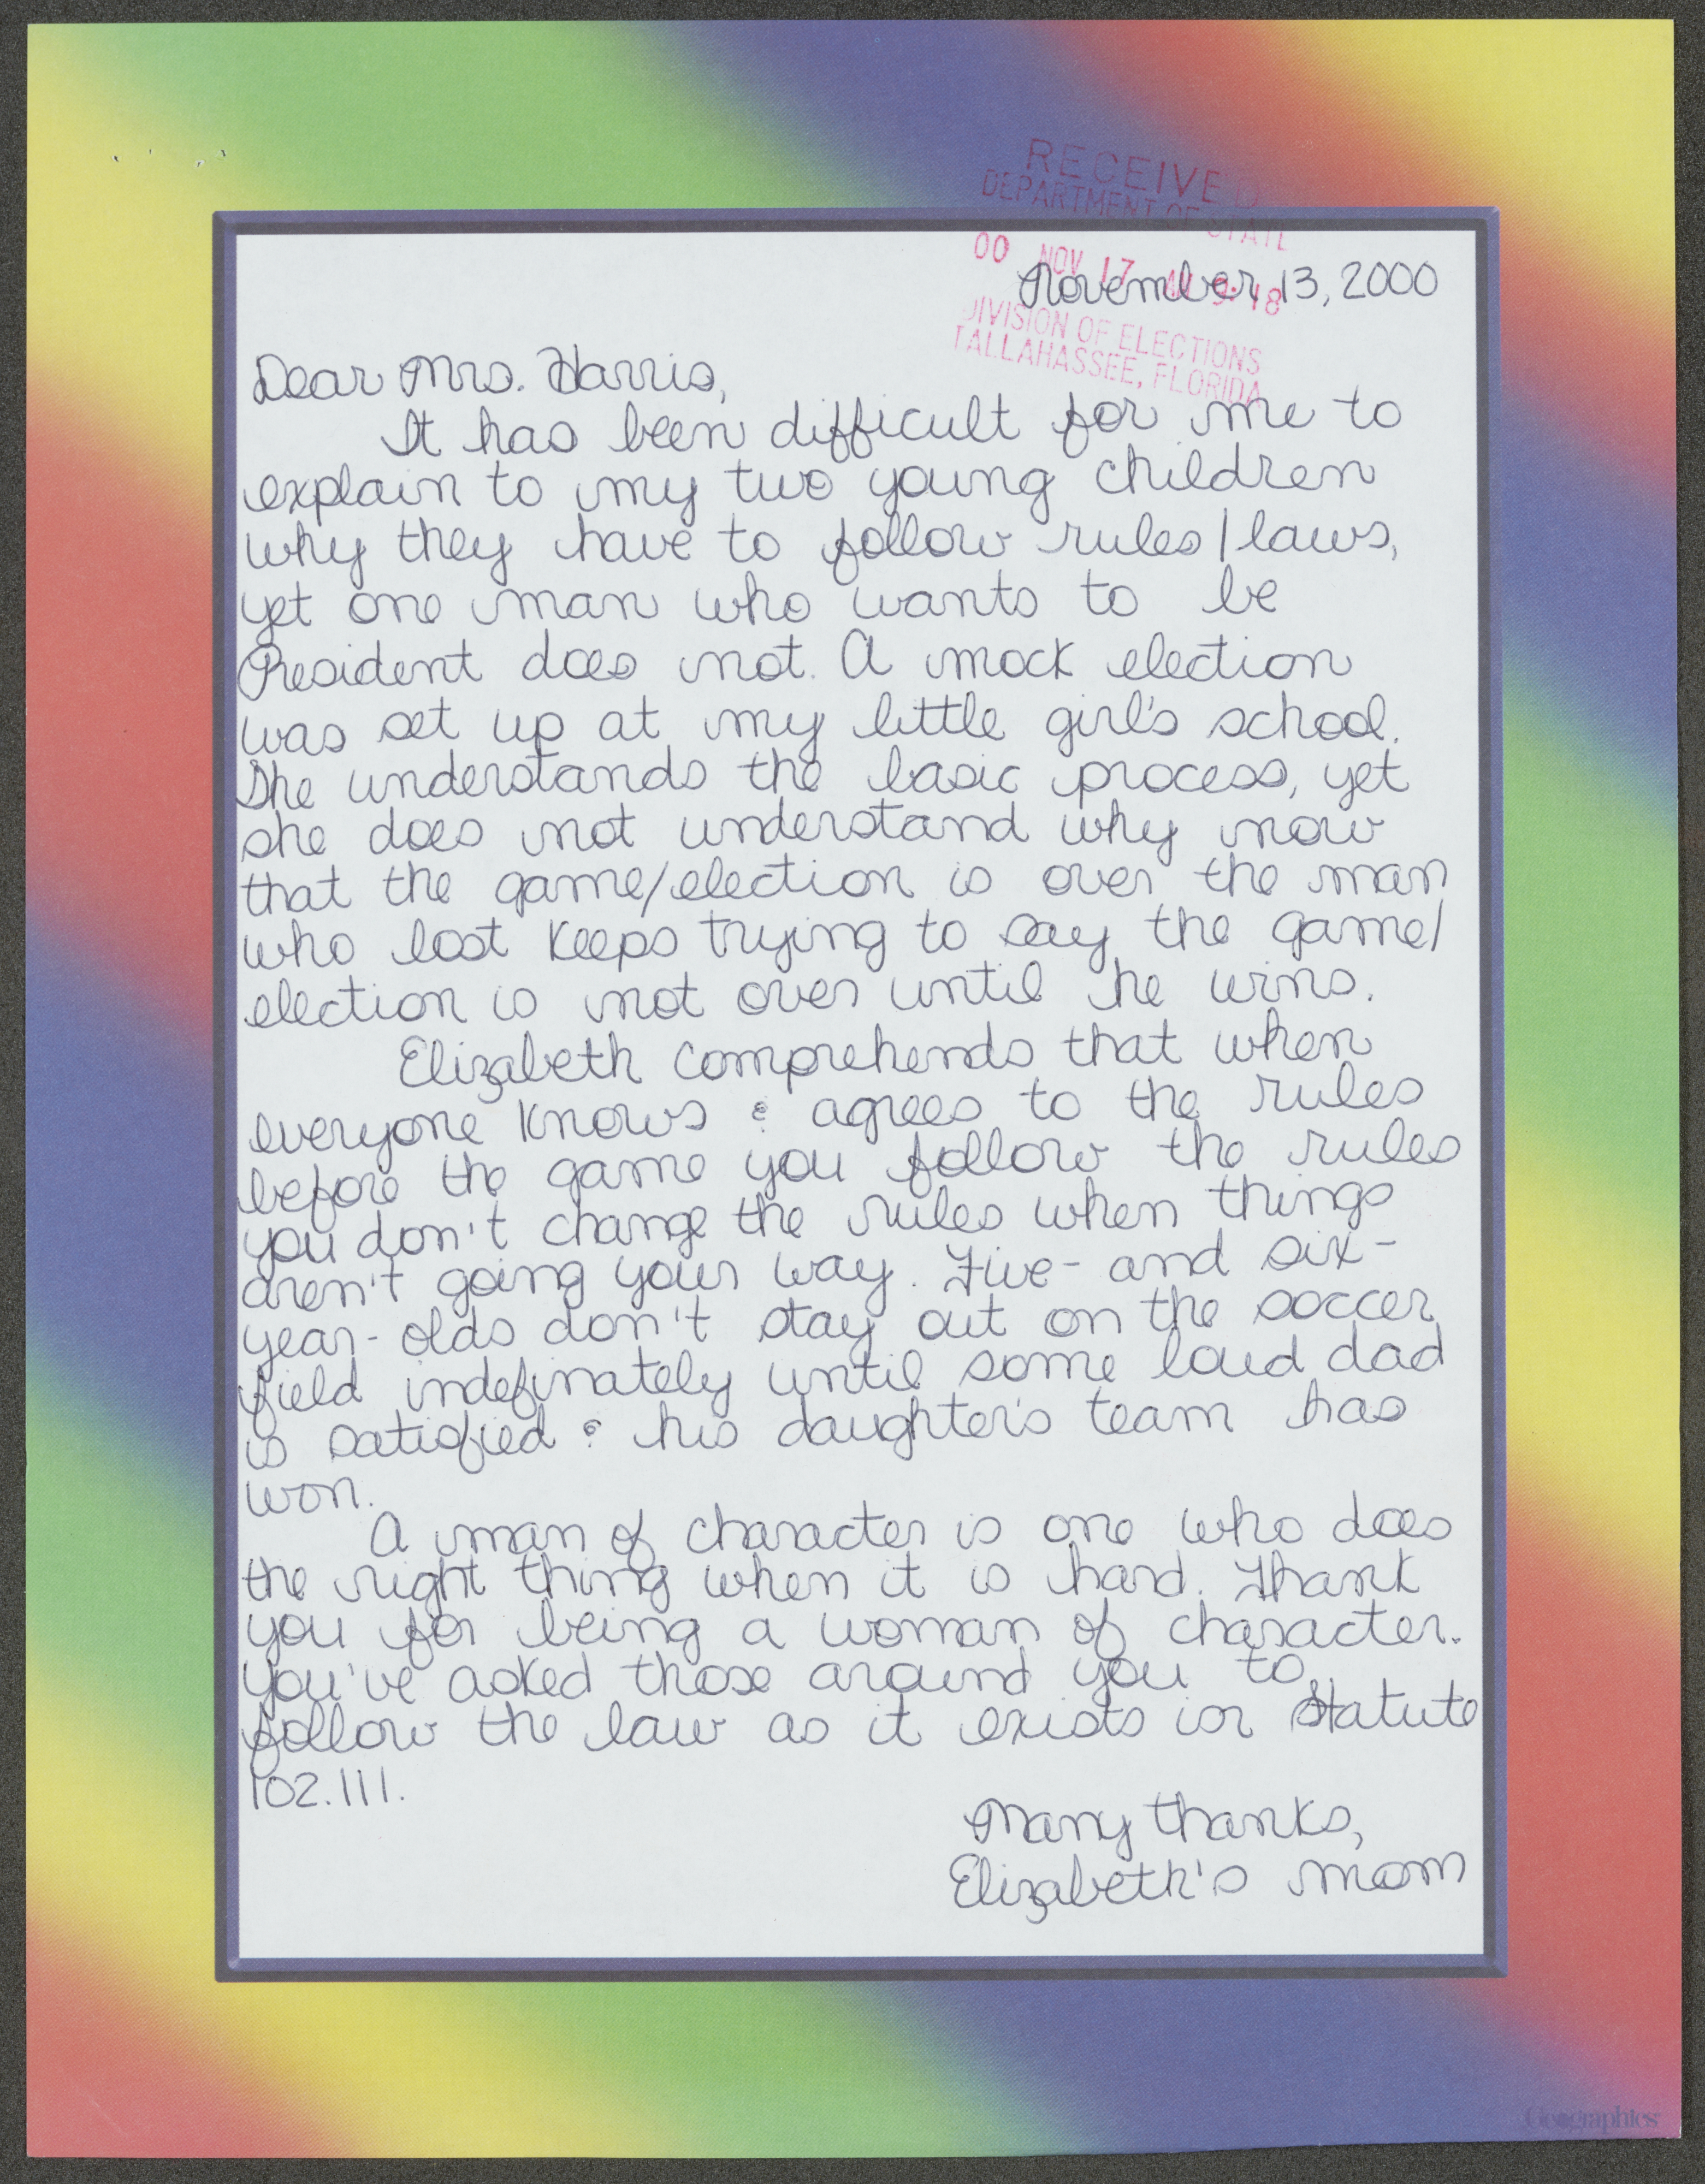 RECEIVED
DEPARTMENT OF STATE
00 NOV 17 AM 9:18
DIVISION OF ELECTIONS
TALLAHASSEE, FLORIDA
November 13, 2000
Dear Mrs. Harris,
It has been difficult for me to
explain to my two young children
why they have to follow rules/laws,
yet one man who wants to be
President does not. A mock election
was set up at my little girl's school.
She understands the basic process, yet
she does not understand why now
that the game/election is over the man
who lost keeps trying to say the game/
election is not over until he wins.
Elizabeth comprehends that when
everyone knows & agrees to the rules
before the game you follow the rules
you don't change the rules when things
aren't going your way. Five- and six-
year-olds don't stay out on the soccer
field indefinately until some loud dad
is satisfied & his daughter's team has
won.
A man of character is one who does
the right thing when it is hard. Thank
you for being a woman of character.
You've asked those around you to
follow the law as it exists in Statute
102.111.
Many thanks,
Elizabeth's mom
Geographics